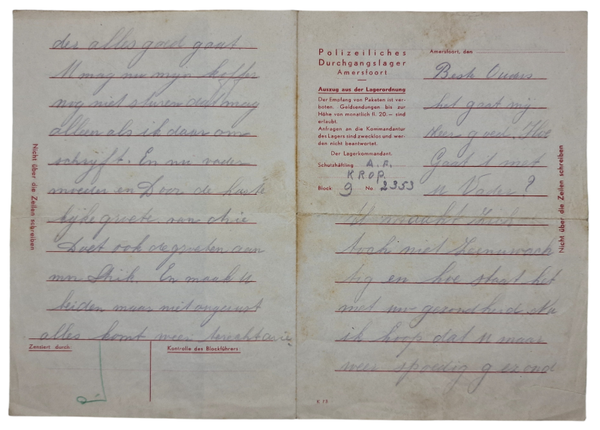 der alles goed gaat
U mag nu mijn koffer
nog niet sturen dat mag
alleen als ik daar om
schrijf. En nu vader
moeder en Door de
groeten van
Doet ook de groeten aan
En maak U
beiden maar niet ongerust
alles komt weer terecht
Nicht über die Zeilen schreiben
Zensiert durch:
Kontrolle des Blockführers
Polizeiliches
Durchgangslager
Amersfoort
Auszug aus der Lagerordnung
Der Empfang von Paketen ist ver-
boten. Geldsendungen bis zur
Höhe von monatlich fl. 20.— sind
erlaubt.
Anfragen an die Kommandantur
des Lagers sind zwecklos und wer-
den nicht beantwortet.
Der Lagerkommandant.
Schutzhäftling A.P.
KROP.
Block: 9 No 2353
Amersfoort, den
Beste Ouders
het gaat mij
zeer goed. Hoe
Gaat t met
U Vader?
U
toch niet
en hoe staat het
met uw gezondheid
ik hoop dat U maar
weer spoedig gezond
Nicht über die Zeilen schreiben